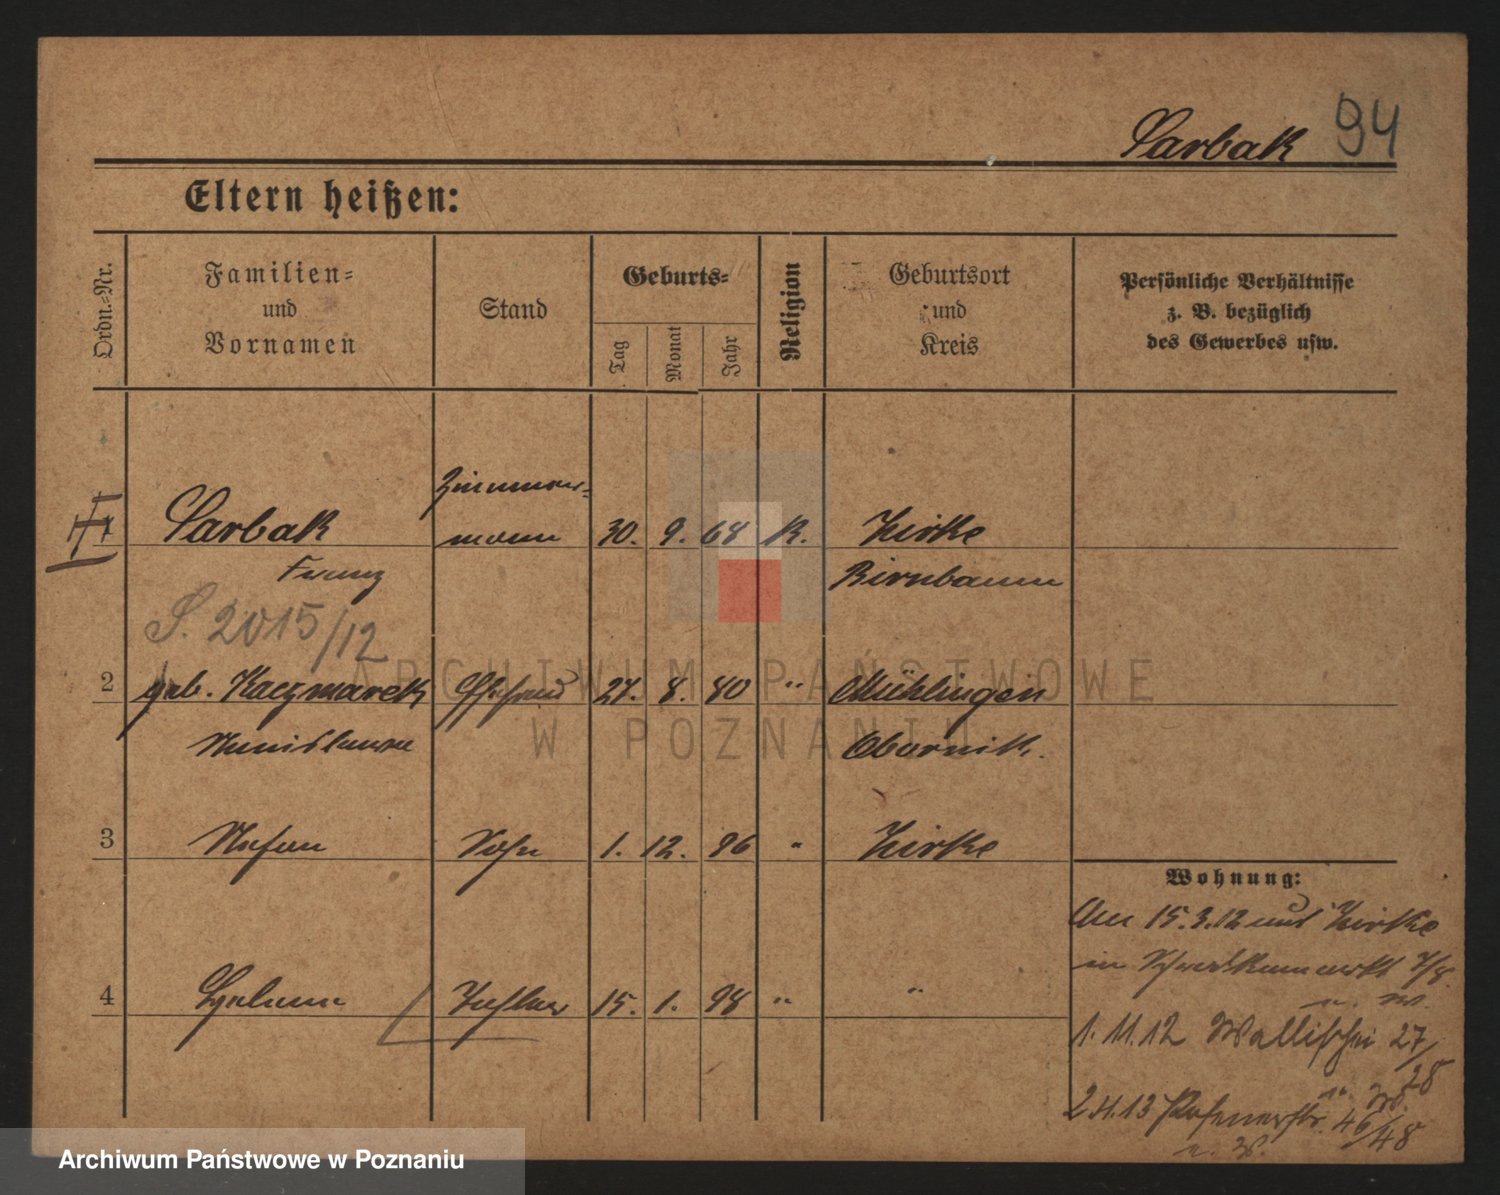 Sarbak 94
Eltern heißen:
Ordn.-Nr.
Familien-
und
Vornamen
Stand
Geburts-
Tag
Monat
Jahr
Religion
Geburtsort
und
Kreis
Persönliche Verhältnisse
z. B. bezüglich
des Gewerbes usw.
Zimmer-
Sarbak mann 30. 9. 68 K. Zirke
Franz Birnbaum
S. 2015/12
2 geb. Kaczmarek Ehefrau 27. 8. 80 " Mühlingen
Stanislawa Obornik.
3 Stefan Sohn 1. 12. 96 " Zirke
Wohnung:
Am 15.3.12 aus Zirke
in 7/8.
u. W.
4 Helena Tochter 15. 1. 98 " "
1. 11. 12 Wallischei 27/
28
u. W.
2 11.13 Posenerstr. 46/48
u. W.
ARCHIWUM PAŃSTWOWE
W POZNANIU
Archiwum Państwowe w Poznaniu